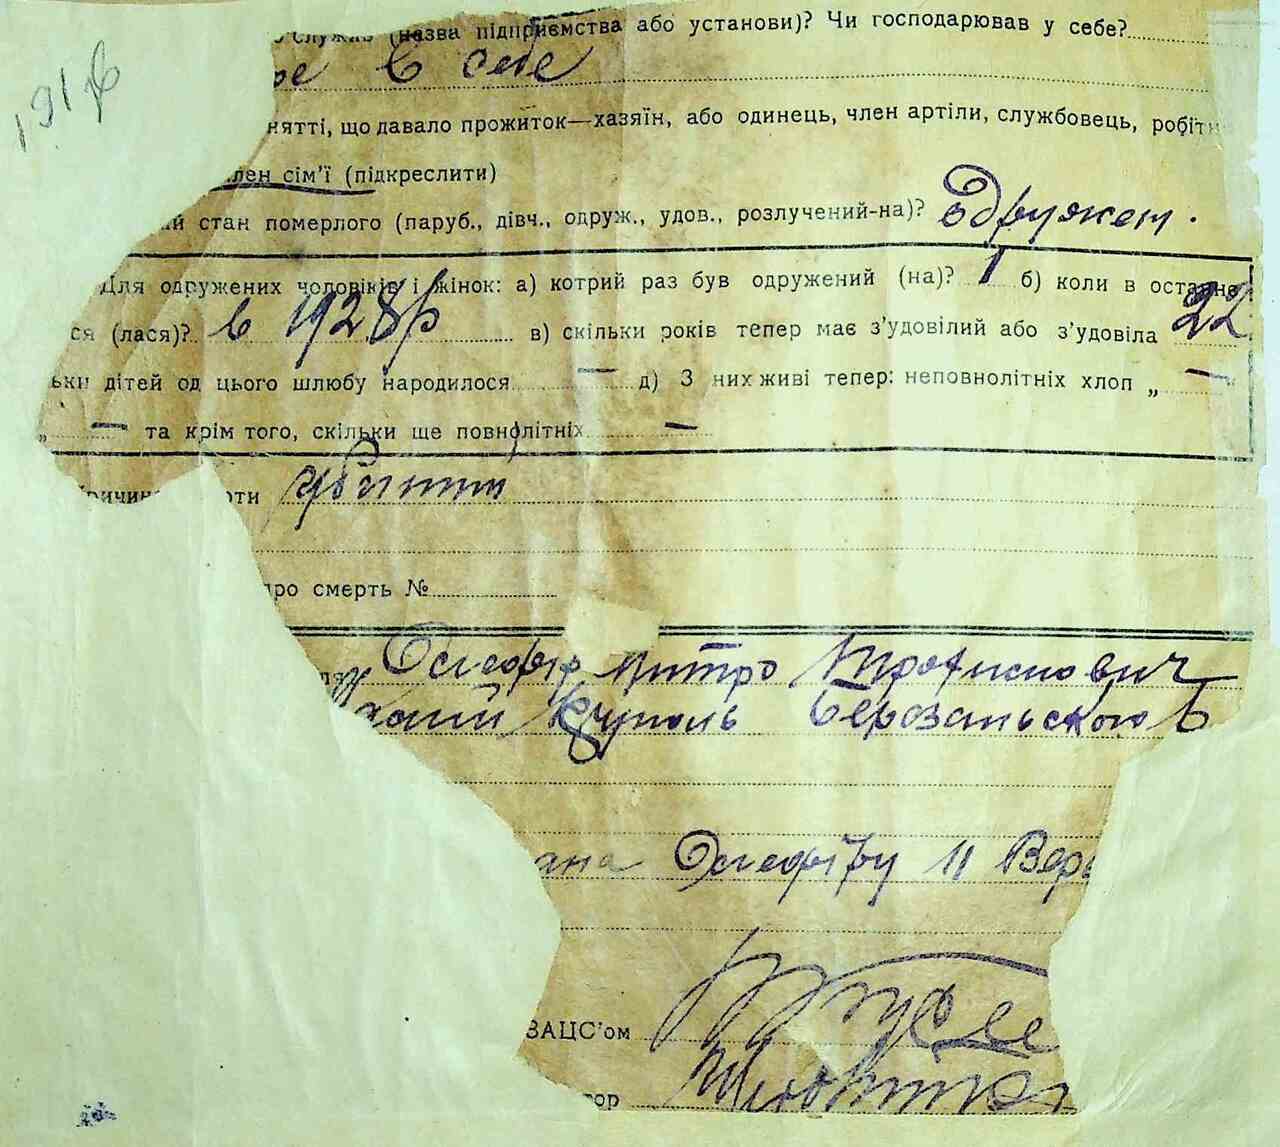 служив (назва підприємства або установи)? Чи господарював у себе?
в себе
нятті, що давало прожиток—хазяїн, або одинець, член артіли, службовець, робітн
лен сім'ї (підкреслити)
ий стан померлого (паруб., дівч., одруж., удов., розлучений-на)? Одружен.
Для одружених чоловіків і жінок: а) котрий раз був одружений (на)? 1 б) коли в останнє
ся (лася)? в 1928 р в) скільки років тепер має з'удовілий або з'удовіла 22
ьки дітей од цього шлюбу народилося — д) З них живі тепер: неповнолітніх хлоп „ — "
„ — та крім того, скільки ще повнолітніх —
Причина рти убиття
про смерть №
Митро Трофимович
Березанського
ана 11 Вер
ЗАЦС'ом
ор